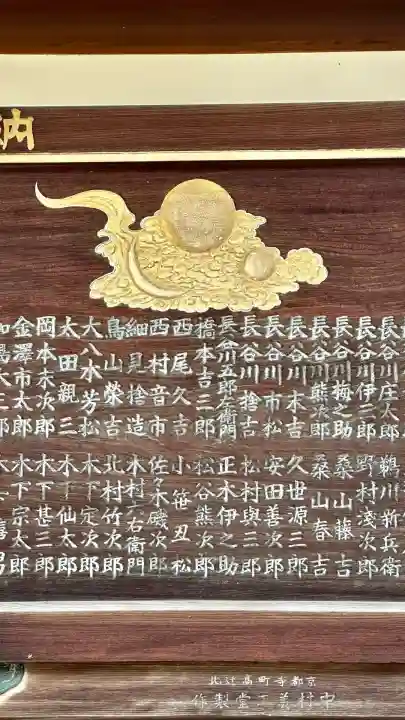 納
長谷川庄太郎
長谷川伊三郎
長谷川梅之助
長谷川熊次郎
長谷川末吉
長谷川市松
長谷川捨吉
長谷川五郎右衛門
橋本吉三郎
西尾久吉
西村音市
細見捨造
鳥山榮吉
大八木芳松
太田親三
岡本末次郎
金澤市太郎
鵜川新兵衛
野村淺次郎
桑山藤吉
桑山春吉
久世源三郎
安田善次郎
松村與三郎
正木伊之助
松谷熊次郎
小笹丑松
佐々木磯次郎
木村六右衛門
北村竹次郎
木下定次郎
木下仙太郎
木下甚三郎
木下宗太郎
京都寺町高辻北
中村義工堂製作